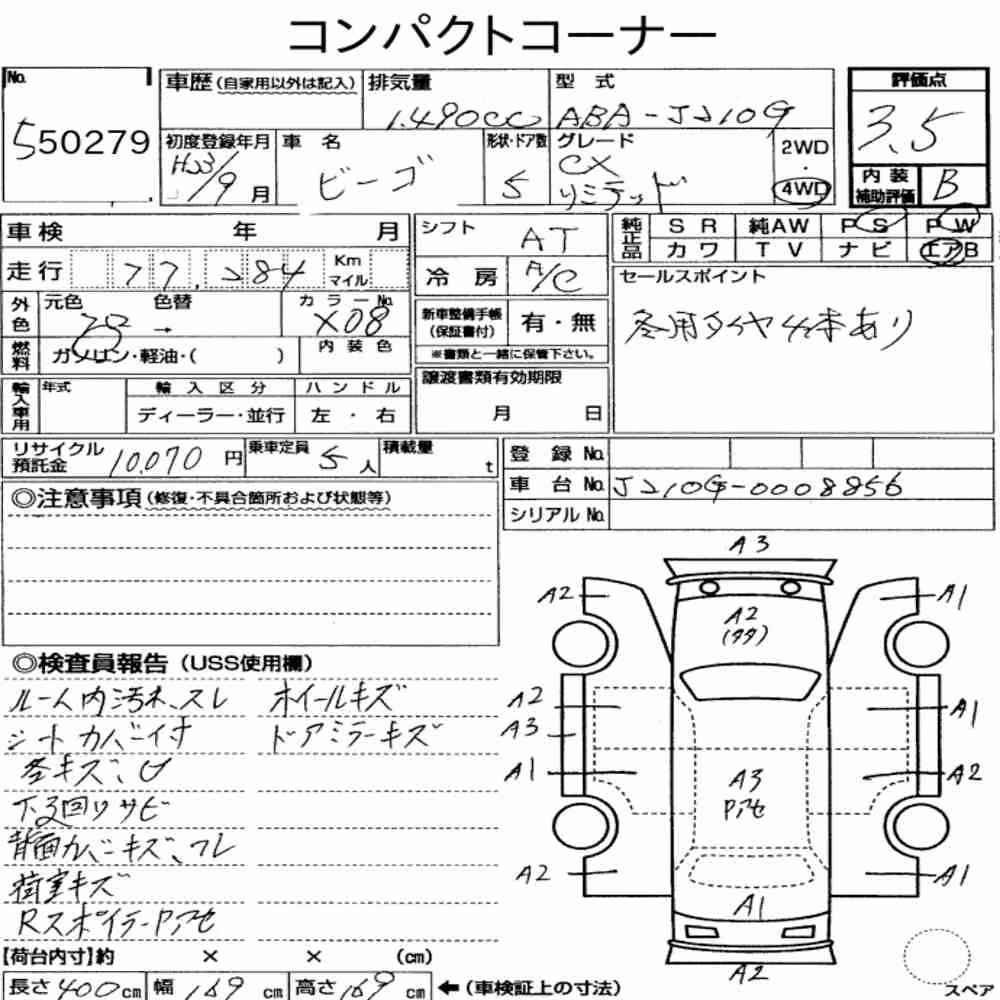 コンパクトコーナー
No. 550279
車歴 (自家用以外は記入)
排気量 1.490cc
型式 ABA-J210G
評価点 3.5
内装補助評価 B
初度登録年月 H23/9月
車名 ビーゴ
形状・ドア数 5
グレード CX リミテッド
2WD・4WD
車検 年 月
走行 77,284 Km マイル
シフト AT
冷房 A/C
純正品 SR 純AW PS PW
カワ TV ナビ エアB
外色 元色 色替 →
カラーNo. X08
内装色
燃料 ガソリン・軽油・( )
新車整備手帳(保証書付) 有・無
※書類と一緒に保管下さい。
セールスポイント
冬用タイヤ4本あり
輸入車用 年式 輸入区分 ハンドル
ディーラー・並行 左・右
譲渡書類有効期限
月 日
リサイクル預託金 10,070円
乗車定員 5人
積載量 t
登録No.
車台No. J210G-0008856
シリアルNo.
◎注意事項 (修復・不具合箇所および状態等)
◎検査員報告 (USS使用欄)
ルーム内汚れ、スレ ホイールキズ
シートカバー付 ドアミラーキズ
各キズ、凹
下廻りサビ
背面カバーキズ、ワレ
荷室キズ
RスポイラーPアセ
A3
A2 A1
A2
(タタ)
A2 A1
A3
A1 A3 A2
Pアセ
A2 A1
A1
A2
スペア
【荷台内寸】約 × × (cm)
長さ 400cm 幅 169cm 高さ 169cm ←(車検証上の寸法)